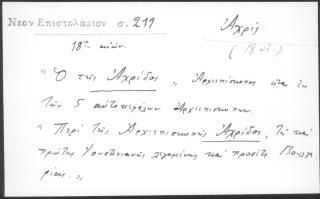 Νεον Επιστολαριον σ. 219
Ἀχρίς
18ος αἰών.
(18 αἰ.)
"Ὁ τῆς Ἀχρίδος" Ἀρχιεπίσκοπος εἷς ἐκ
τῶν 5 αὐτοκεφάλων ἀρχιεπισκόπων.
"Περὶ τῆς Ἀρχιεπισκοπῆς Ἀχρίδος, τῆς καὶ
πρώτης Ἰουστινιανῆς λεγομένης καὶ προσέτι Βουλγα
ρίας."